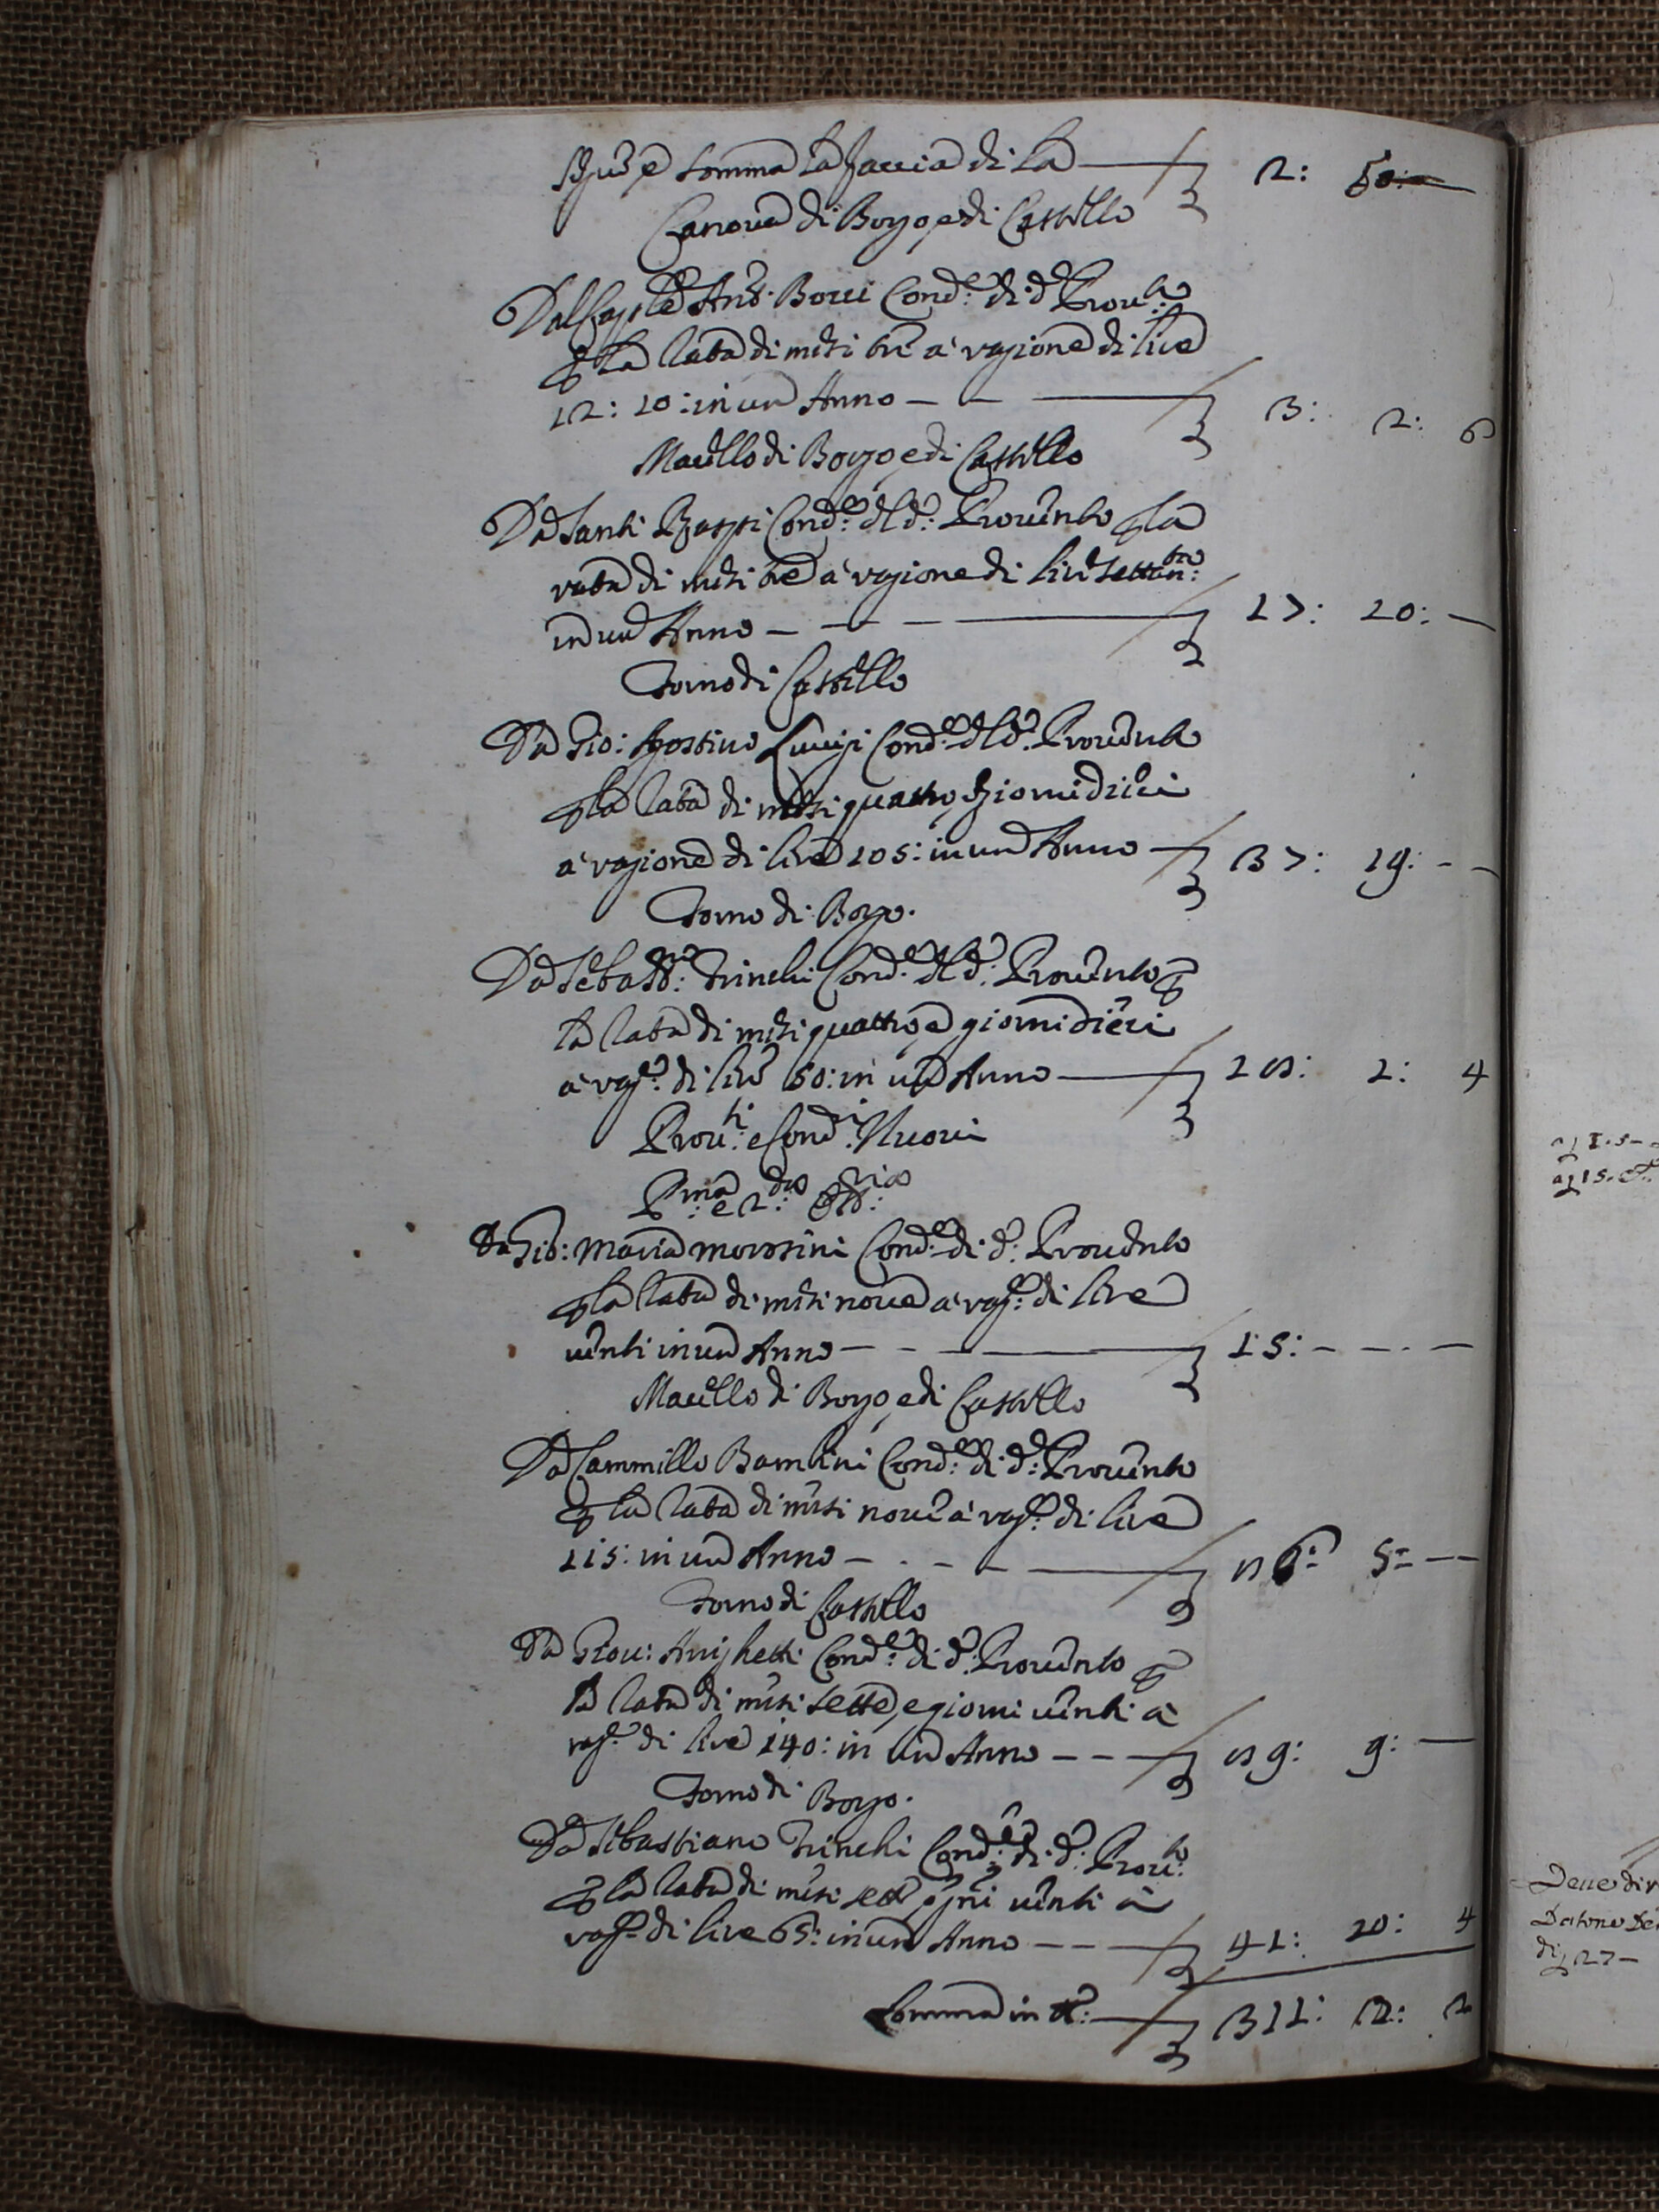 Segue e somma la faccia di la — 2: 50: —
Canova di Borgo, e di Castello
Dal Cap.le Ant.o Bocci Cond.e di d.o Prou.to
p la rata di mesi tre a ragione di lire
12: 10: in un Anno — 3: 2: 6
Macello di Borgo, e di Castello
Da Santi Cond.e del d.o Prouento p la
rata di mesi tre a ragione di lire settan:ta
in un Anno — 17: 10: —
Forno di Castello
Da Gio: Agostino Cond.e del d.o Prouento
p la rata di mesi quattro, e giorni dieci
a ragione di lire 105: in un Anno — 37: 19: —
Forno di Borgo.
Da Sebast:no Trinchi Cond.e del d.o Prouento p
la rata di mesi quattro, e giorni dieci
a rag.e di lire 50: in un Anno — 18: 1: 4
Prou:ti e Cond:i Nuoui
P:ma e 2:da Ost:ria
Da Gio: Maria Morosini Cond.e di d.o Prouento
p la rata di mesi noue a rag.e di lire
uenti in un Anno — 15: —
Macello di Borgo, e di Castello
Da Cammillo Bambini Cond.e di d.o Prouento
p la rata di mesi noue a rag.e di lire
115: in un Anno — 86: 5: —
Forno di Castello
Da Giou: Arrighetti Cond.e di d.o Prouento p
la rata di mesi sette, e giorni uenti a
rag.e di lire 140: in un Anno — 89: 9: —
Forno di Borgo.
Da Sebastiano Trinchi Cond.e di d.o Prou:to
p la rata di mesi sette e g.ni uenti a
rag.e di lire 65: in un Anno — 41: 10: 4
Somma in tt.o: — 311: 12: 2
Deue dir
di 27 —